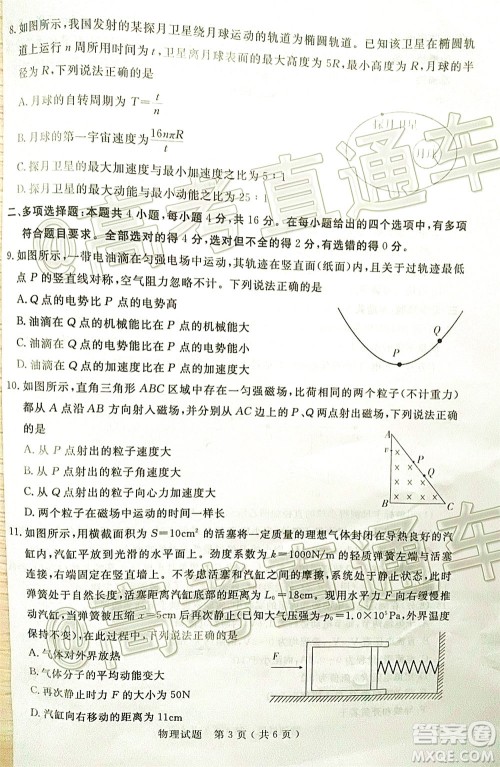 8.如图所示,我国发射的某探月卫星绕月球运动的轨道为椭圆轨道。已知该卫星在椭圆轨
道上运行 n 周所用时间为 t,卫星离月球表面的最大高度为 5R,最小高度为 R,月球的半
径为 R,下列说法正确的是
A.月球的自转周期为 T=t/n
B.月球的第一宇宙速度为16nπR/t
探月卫星
月球
C.探月卫星的最大速度与最小速度之比为 5∶1
D.探月卫星的最大动能与最小动能之比为 25∶1
二、多项选择题:本题共 4 小题,每小题 4 分,共 16 分。在每小题给出的四个选项中,有多项
符合题目要求。全部选对的得 4 分,选对但不全的得 2 分,有选错的得 0 分。
9.如图所示,一带电油滴在匀强电场中运动,其轨迹在竖直面(纸面)内,且关于过轨迹最低
点 P 的竖直线对称,空气阻力忽略不计。下列说法正确的是
A.Q 点的电势比 P 点的电势高
B.油滴在 Q 点的机械能比在 P 点的机械能大
C.油滴在 Q 点的动能比在 P 点的动能大
D.油滴在 Q 点的加速度比在 P 点的加速度大
P
Q
10.如图所示,直角三角形 ABC 区域中存在一匀强磁场,比荷相同的两个粒子(不计重力)
都从 A 点沿 AB 方向射入磁场,并分别从 AC 边上的 P、Q 两点射出,下列说法
正确的是
A.从 P 点射出的粒子速度大
B.从 Q 点射出的粒子速度大
C.从 Q 点射出的粒子向心力加速度大
D.两个粒子在磁场中运动的时间一样长
A
P
Q
B
C
11.如图所示,用横截面积为 S=10cm²的活塞将一定质量的理想气体封闭在导热良好的汽
缸内,汽缸平放到光滑的水平面上。劲度系数为 k=1000N/m的轻质弹簧左端与活塞
连接,右端固定在竖直墙上。不考虑活塞和汽缸之间的摩擦,系统处于静止状态,此时
弹簧处于自然长度、活塞距离汽缸底部的距离为 L₀=18cm。现用水平力向右缓慢推动
汽缸,当弹簧被压缩 x=5cm 后再次静止(已知大气压强为 p₀=1.0×10⁵Pa,外界温度
保持不变)。在此过程中,下列说法正确的是
A.气体对外界放热
B.气体分子的平均动能变大
C.再次静止时力 F 的大小为 50N
D.汽缸向右移动的距离为 11cm
F
物理试题 第 3 页(共 6 页)
高考直通车
高考直通车
答案圈